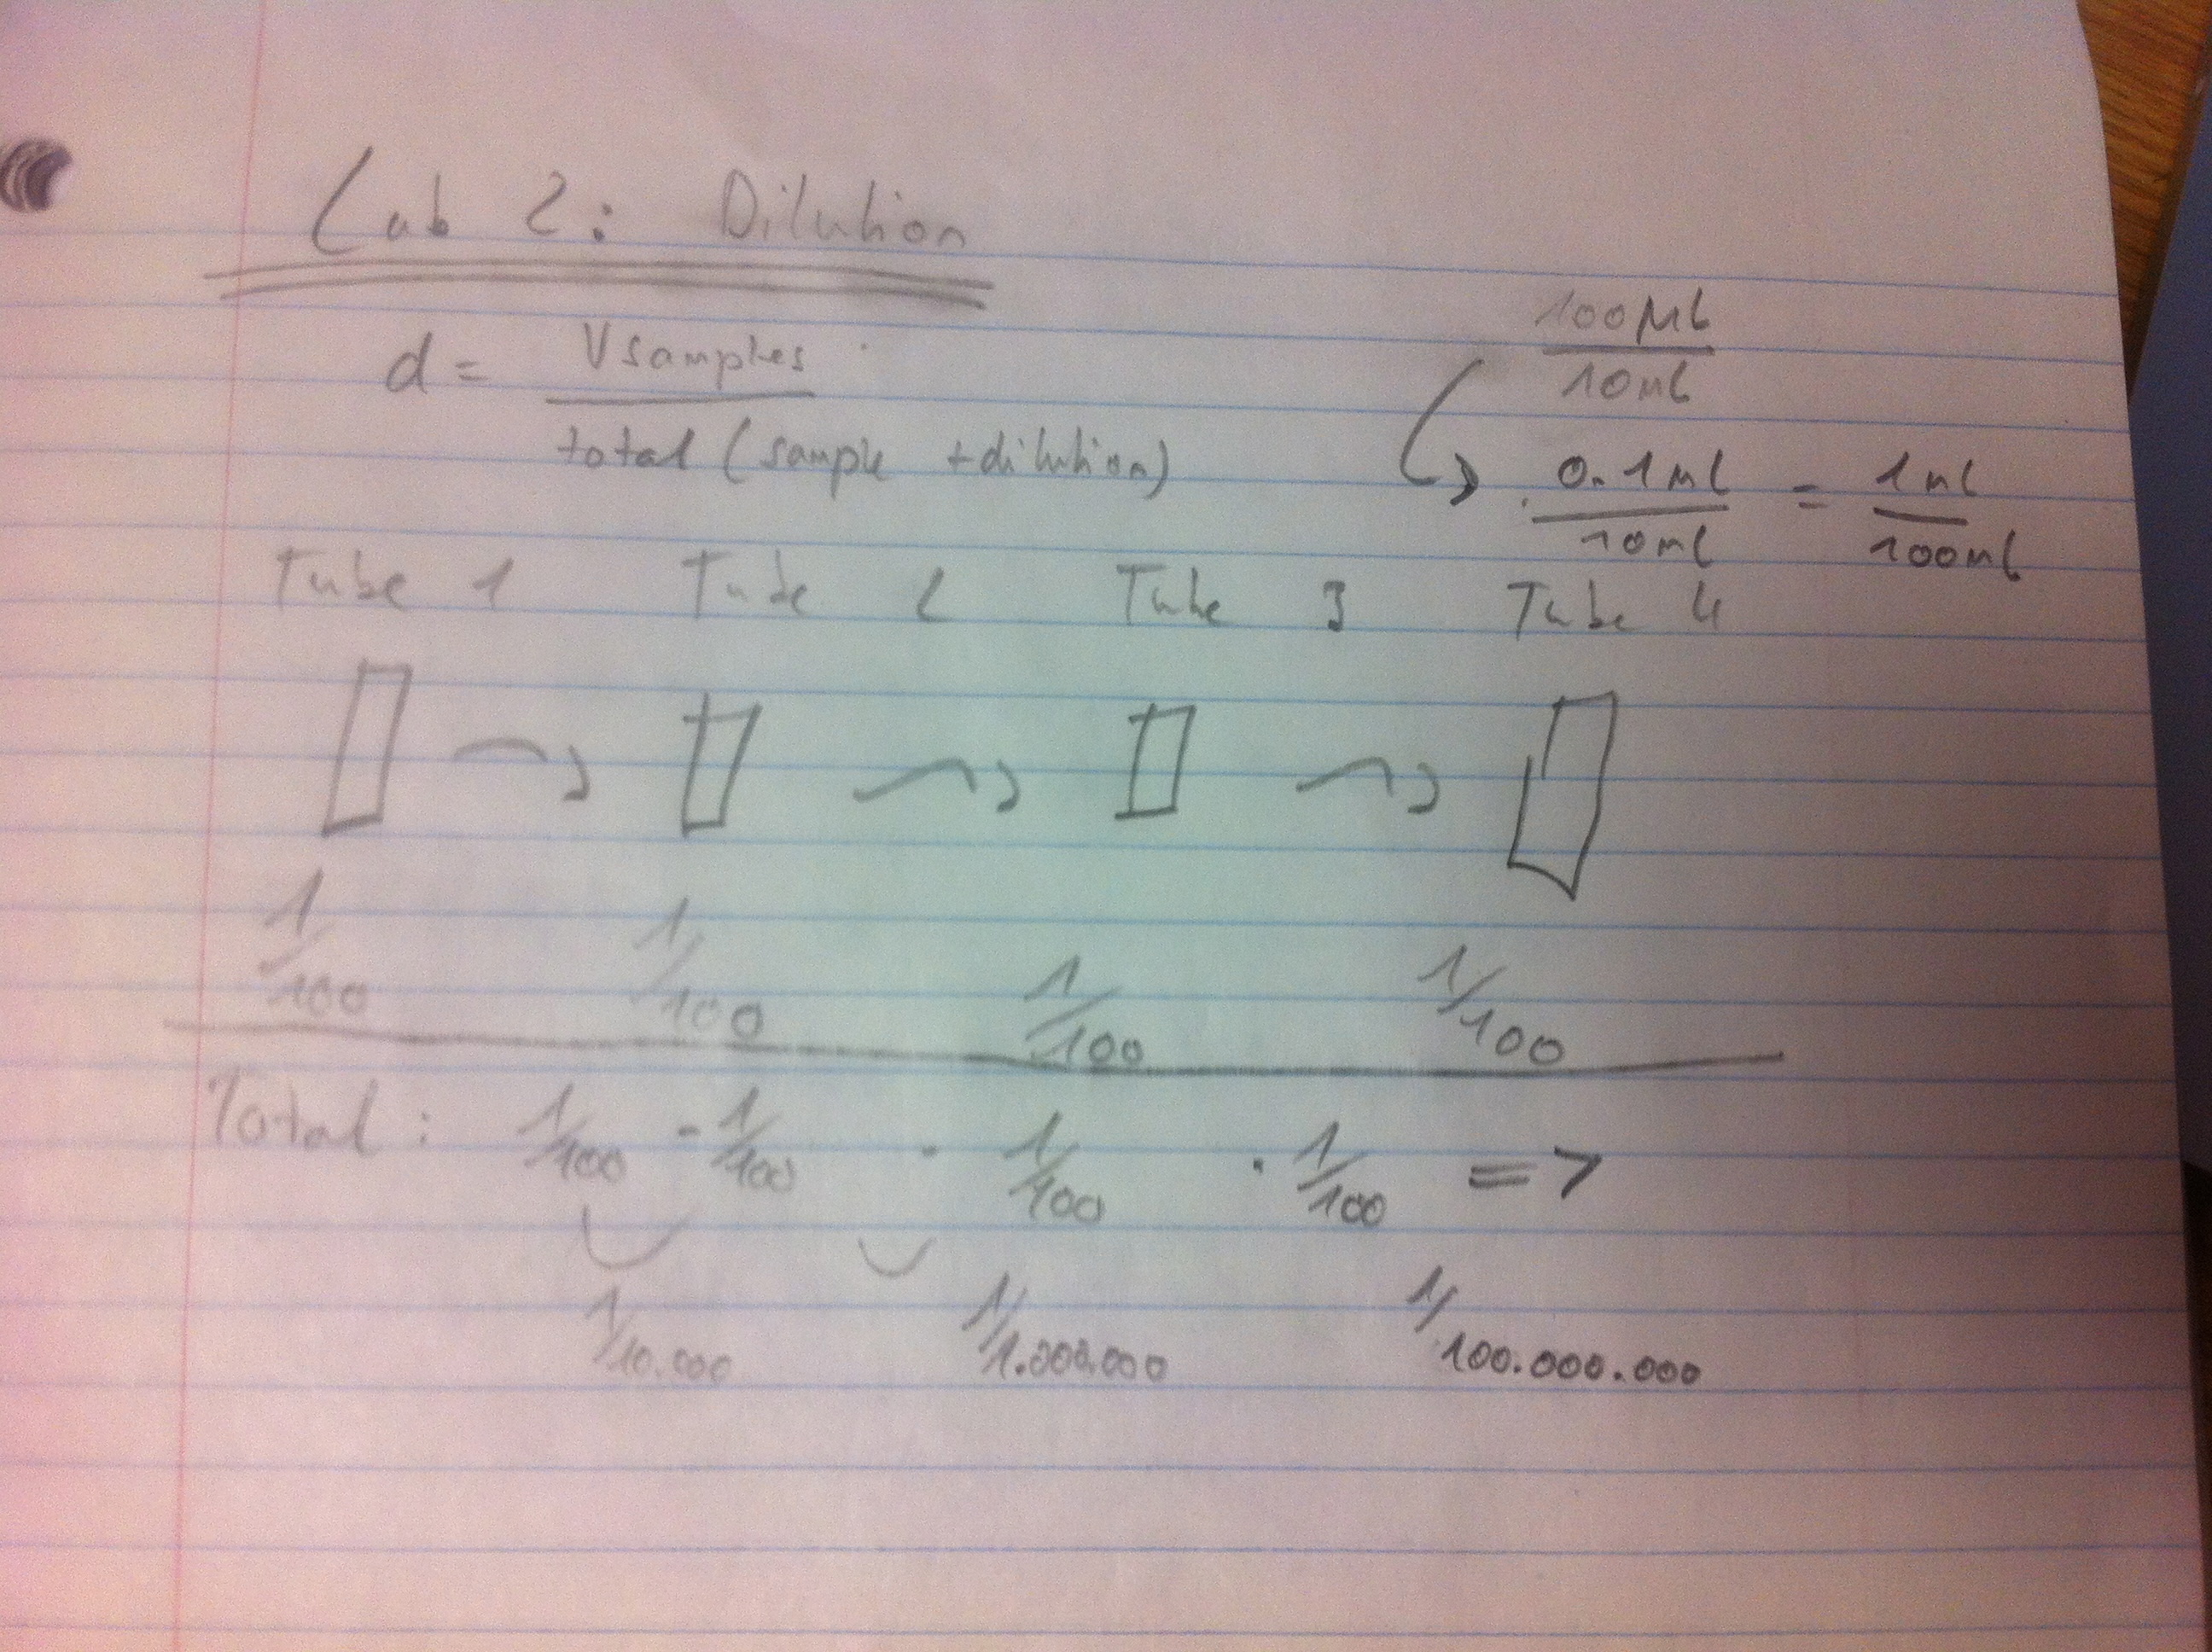 Lab 2: Dilution
d = Vsamples / total (sample + dilution)
100 μl / 10 ml
0.1 ml / 10 ml = 1 ml / 100 ml
Tube 1 Tube 2 Tube 3 Tube 4
1/100 1/100 1/100 1/100
Total: 1/100 · 1/100 · 1/100 · 1/100 =>
1/10.000 1/1.000.000 1/100.000.000